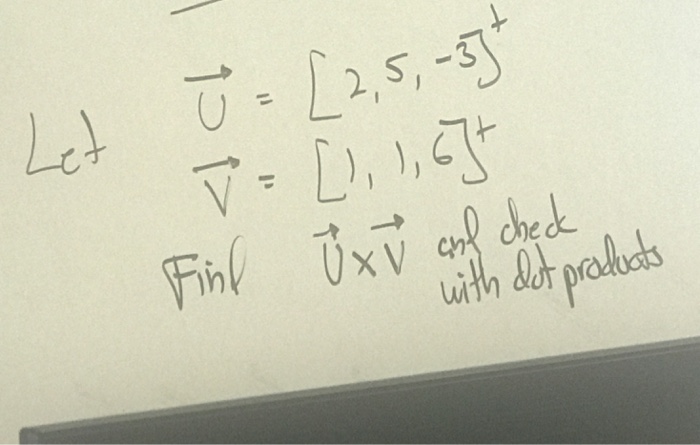 Let
U⃗ = [2, 5, -3]ᵗ
V⃗ = [1, 1, 6]ᵗ
Find U⃗ x V⃗ and check
with dot products